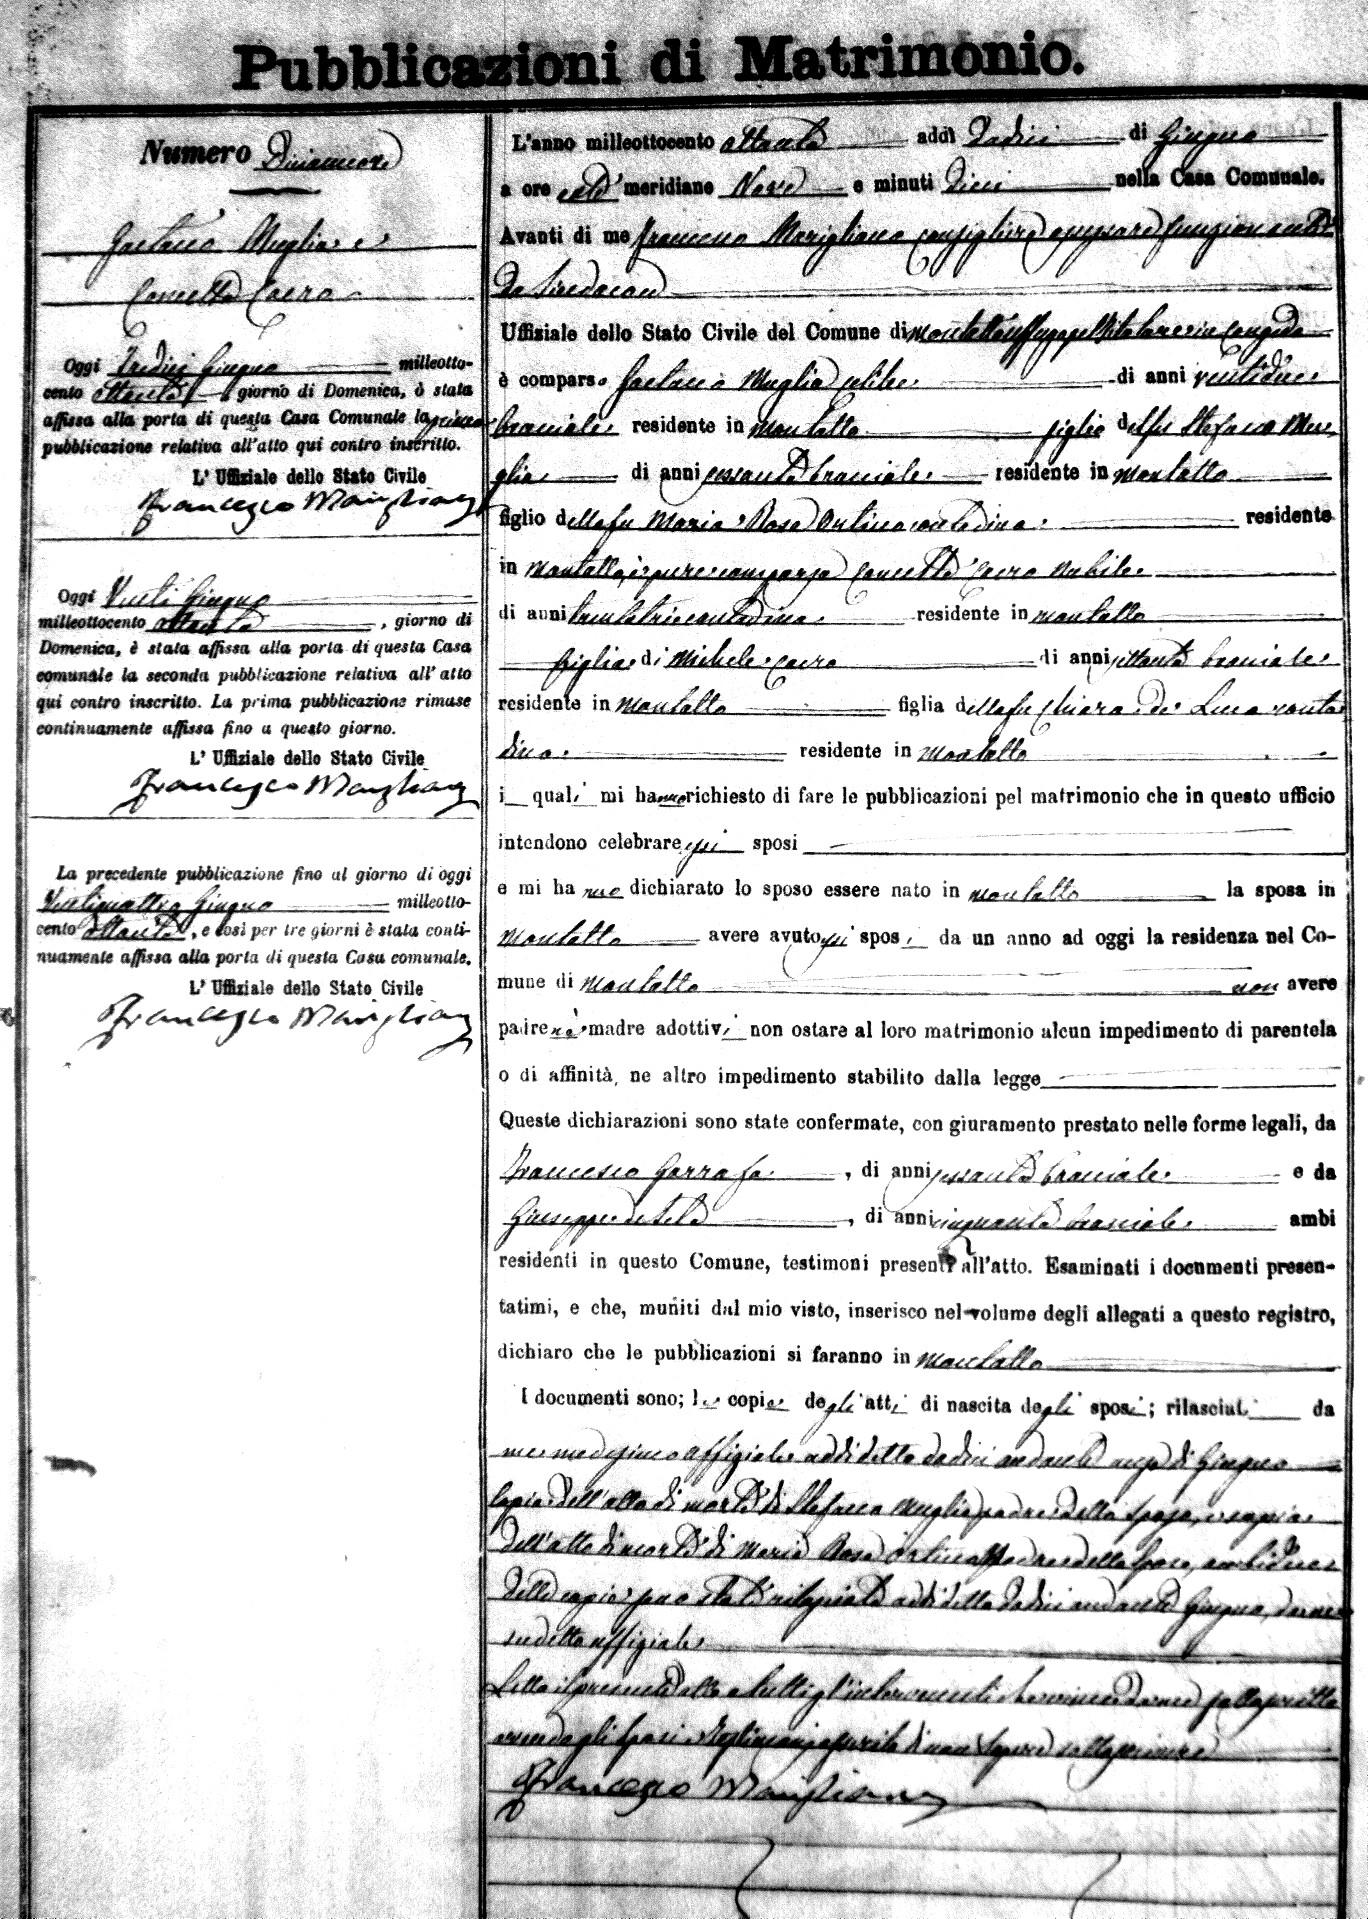 Pubblicazioni di Matrimonio.
Numero Diciannove
Gaetano Muglia e
Concetta Caero
Oggi Tredici Giugno milleotto-
cento ottanta giorno di Domenica, è stata
affissa alla porta di questa Casa Comunale la prima
pubblicazione relativa all'atto qui contro inscritto.
L'Uffiziale dello Stato Civile
Francesco Marigliano
Oggi Venti Giugno
milleottocento ottanta, giorno di
Domenica, è stata affissa alla porta di questa Casa
comunale la seconda pubblicazione relativa all'atto
qui contro inscritto. La prima pubblicazione rimase
continuamente affissa fino a questo giorno.
L'Uffiziale dello Stato Civile
Francesco Marigliano
La precedente pubblicazione fino al giorno di oggi
Ventiquattro Giugno milleotto-
cento ottanta, e così per tre giorni è stata conti-
nuamente affissa alla porta di questa Casa comunale.
L'Uffiziale dello Stato Civile
Francesco Marigliano
L'anno milleottocento ottanta addì Dodici di Giugno
a ore meridiane Nove e minuti Dieci nella Casa Comunale.
Avanti di me Francesco Marigliano Consigliere
da Sindaco
Uffiziale dello Stato Civile del Comune di Montalto Uffugo pel titolare in congedo
è comparso Gaetano Muglia celibe di anni ventidue
bracciale residente in Montalto figlio del fu Stefano Mu
glia di anni sessanta bracciale residente in Montalto
figlio della fu Maria Rosa Ortino contadina residente
in Montalto, è pure comparsa Concetta Caero Nubile
di anni trentatrè contadina residente in Montalto
figlia di Michele Caero di anni settanta bracciale
residente in Montalto figlia della fu Chiara de Luca conta
dina residente in Montalto
i quali mi hanno richiesto di fare le pubblicazioni pel matrimonio che in questo ufficio
intendono celebrare essi sposi
e mi hanno dichiarato lo sposo essere nato in Montalto la sposa in
Montalto avere avuto essi sposi da un anno ad oggi la residenza nel Co-
mune di Montalto non avere
padre nè madre adottivi non ostare al loro matrimonio alcun impedimento di parentela
o di affinità, ne altro impedimento stabilito dalla legge
Queste dichiarazioni sono state confermate, con giuramento prestato nelle forme legali, da
Francesco Garrafa, di anni sessanta bracciale e da
Giuseppe de Seta, di anni cinquanta bracciale ambi
residenti in questo Comune, testimoni presenti all'atto. Esaminati i documenti presen-
tatimi, e che, muniti dal mio visto, inserisco nel volume degli allegati a questo registro,
dichiaro che le pubblicazioni si faranno in Montalto
I documenti sono; le copie degli atti di nascita degli sposi; rilasciati da
me medesimo uffiziale addì detto dodici andante mese di Giugno
Copia dell'atto di morte di Stefano Muglia padre dello sposo, e copia
dell'atto di morte di Maria Rosa Ortino Madre dello sposo, ambidue
dette copie sono state rilasciate addì detto dodici andante Giugno, da me
sudetto uffiziale
Letto il presente atto a tutti gl'intervenuti che viene da me sottoscritto
avendo gli sposi e testimoni asserito di non sapere sottoscrivere
Francesco Marigliano